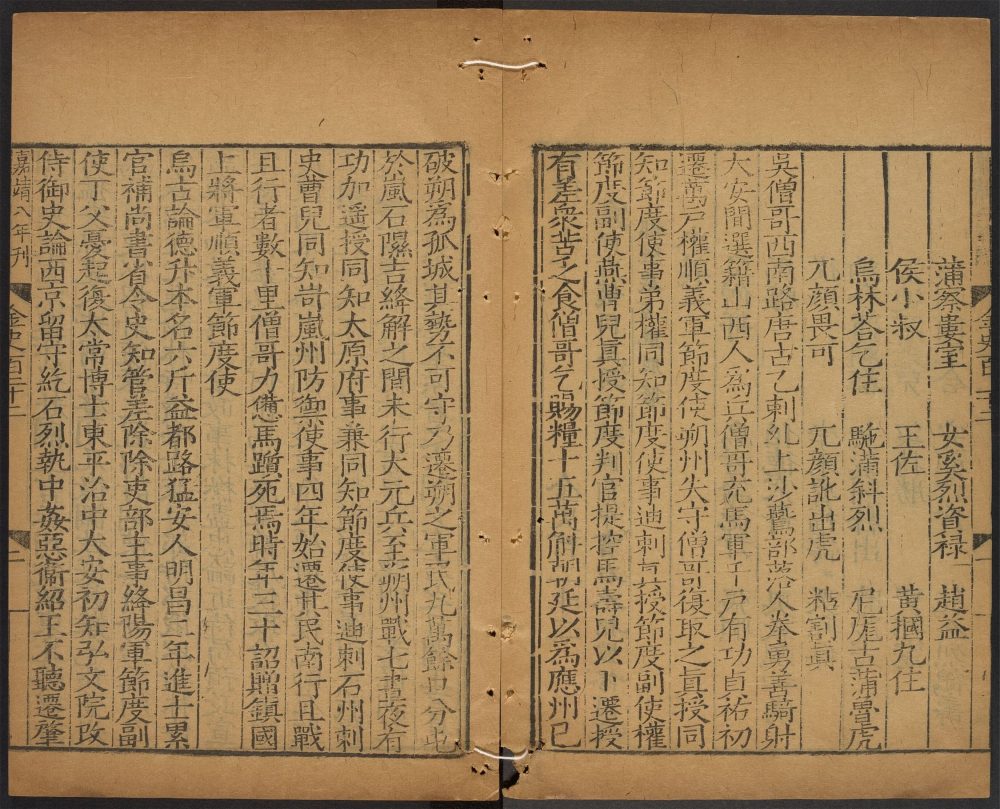 蒲察婁室 女奚烈資祿 趙益
侯小叔 王佐 黃摑九住
烏林荅乞住 䮾滿斜烈 尼厖古蒲魯虎
兀顏畏可 兀顏訛出虎 粘割眞
吳僧哥西南路唐古乙剌糺上沙鷰部落人拳勇善騎射
大安間選籍山西人爲兵僧哥充馬軍千戶有功貞祐初
遷萬戶權順義軍節度使朔州失守僧哥復取之眞授同
知節度使事弟權同知節度使事迪剌眞授節度副使權
節度副使燕曹兒眞授節度判官提控馬壽兒以下遷授
有差衆苦乏食僧哥乞賜糧十五萬斛朝廷以爲應州已
破朔爲孤城其勢不可守乃遷朔之軍民九萬餘口分屯
於嵐石隰吉絳解之間未行大元兵至朔州戰七晝夜有
功加遥授同知太原府事兼同知節度使事迪剌石州刺
史曹兒同知岢嵐州防禦使事四年始遷其民南行且戰
且行者數十里僧哥力憊馬躓死焉時年三十詔贈鎮國
上將軍順義軍節度使
烏古論德升本名六斤益都路猛安人明昌二年進士累
官補尚書省令史知管差除除吏部主事絳陽軍節度副
使丁父憂起復太常博士東平治中大安初知弘文院改
侍御史論西京留守紇石烈執中姦惡衞紹王不聽遷肇
嘉靖八年刊